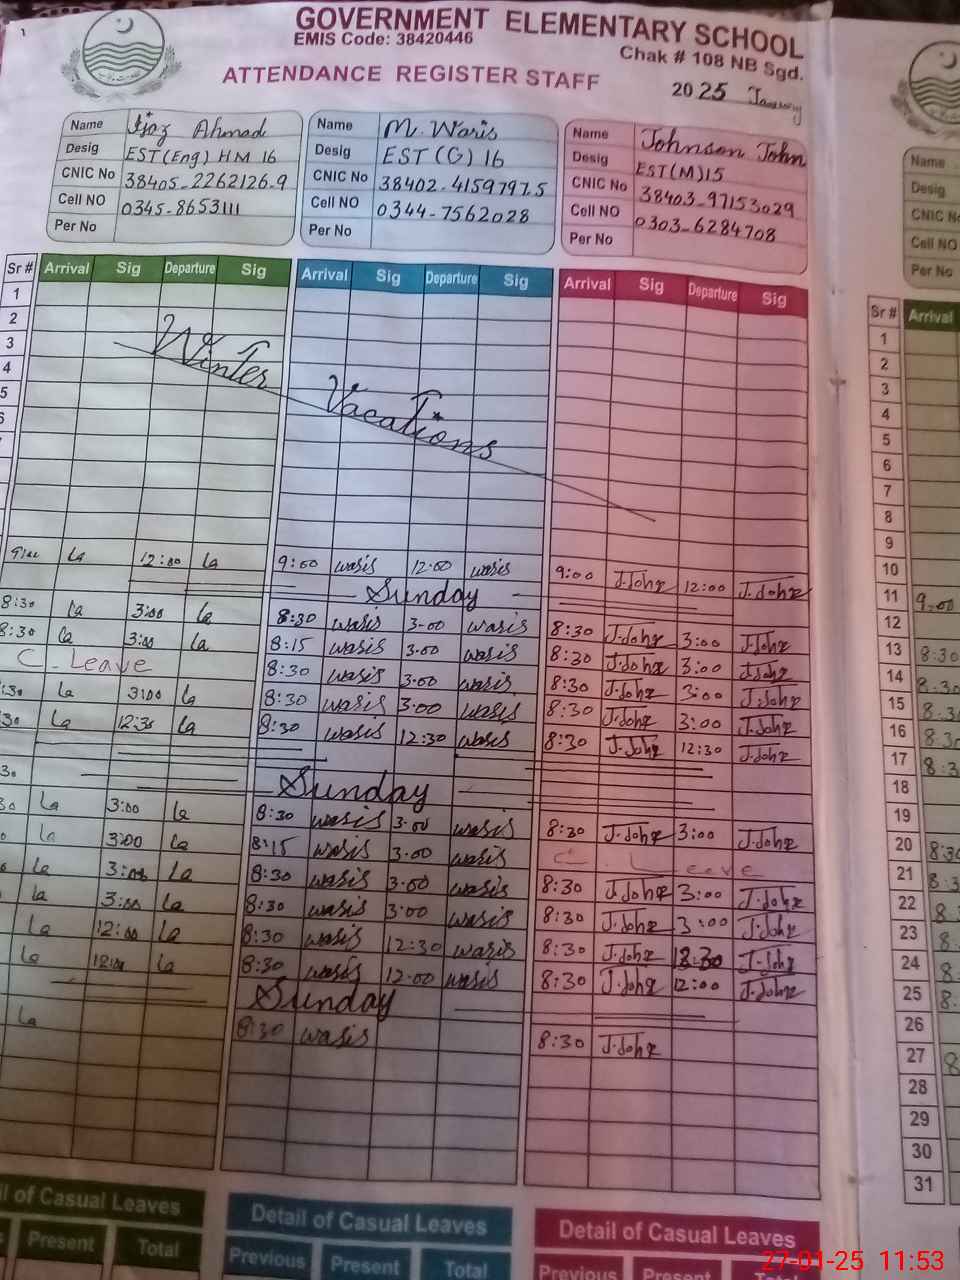 GOVERNMENT ELEMENTARY SCHOOL
EMIS Code: 38420446
Chak # 108 NB Sgd.
ATTENDANCE REGISTER STAFF
2025 January
Name Ijaz Ahmad
Desig EST (Eng) HM 16
CNIC No 38405-2262126-9
Cell NO 0345-8653111
Per No
Name M. Waris
Desig EST (G) 16
CNIC No 38402-4159797-5
Cell NO 0344-7562028
Per No
Name Johnson John
Desig EST (M) 15
CNIC No 38403-97153029
Cell NO 0303-6284708
Per No
Name
Desig
CNIC No
Cell NO
Per No
Sr # Arrival Sig Departure Sig Arrival Sig Departure Sig Arrival Sig Departure Sig Sr # Arrival
1 1
2 2
3 3
4 4
5 5
6
7
8
9
Winter Vacations
12:00 9:00 waris 12:00 waris 9:00 J.John 12:00 J.John 10
Sunday 11 9:00
8:30 3:00 8:30 waris 3:00 waris 8:30 J.John 3:00 J.John 12
8:30 3:00 8:15 waris 3:00 waris 8:30 J.John 3:00 J.John 13 8:30
C. Leave 8:30 waris 3:00 waris 8:30 J.John 3:00 J.John 14 8:30
:30 3:00 8:30 waris 3:00 waris 8:30 J.John 3:00 J.John 15 8:30
30 12:30 8:30 waris 12:30 waris 8:30 J.John 12:30 J.John 16 8:30
17 8:3
18
Sunday 19
3:00 8:30 waris 3:00 waris 8:30 J.John 3:00 J.John 20 8:30
3:00 8:15 waris 3:00 waris C. Leave 21 8:3
3:00 8:30 waris 3:00 waris 8:30 J.John 3:00 J.John 22 8
3:00 8:30 waris 3:00 waris 8:30 J.John 3:00 J.John 23 8
12:00 8:30 waris 12:30 waris 8:30 J.John 12:30 J.John 24 8
8:30 waris 12:00 waris 8:30 J.John 12:00 J.John 25 8:
Sunday 26
8:30 waris 8:30 J.John 27 8
28
29
30
31
il of Casual Leaves Detail of Casual Leaves Detail of Casual Leaves
Present Total Previous Present Total Previous Present
27-01-25 11:53